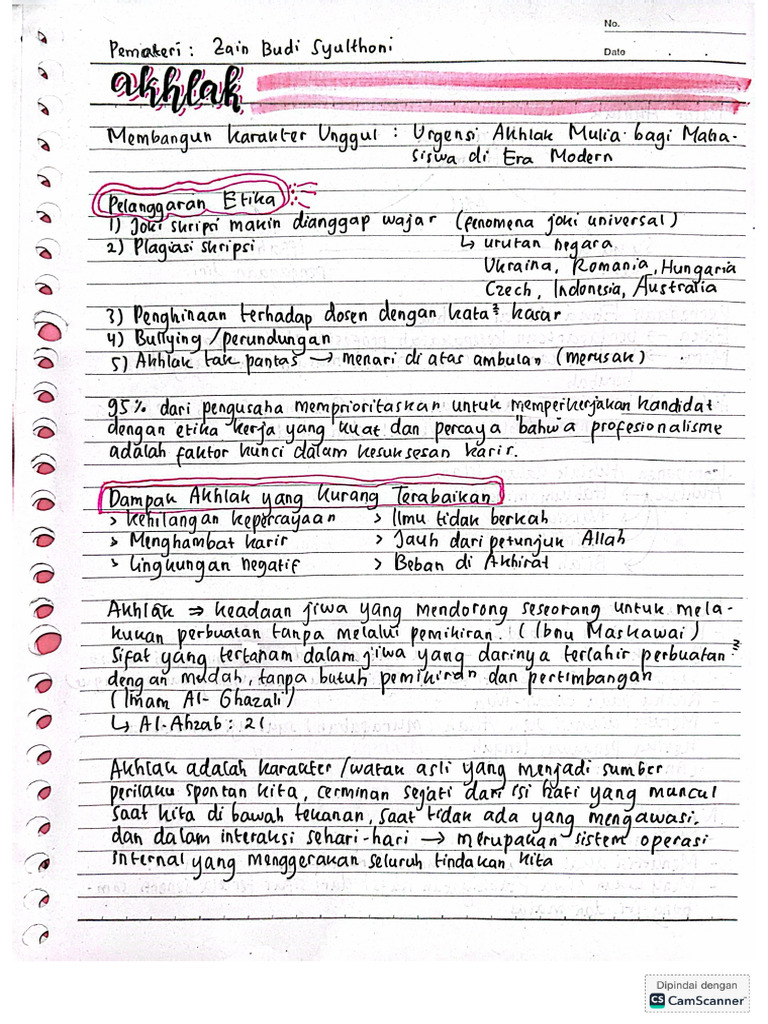 No.
Pemateri : Zain Budi Syulthoni
Date . .
akhlak
Membangun Karakter Unggul : Urgensi Akhlak Mulia bagi Maha-
siswa di Era Modern
Pelanggaran Etika
1) Joki skripsi makin dianggap wajar (fenomena joki universal)
2) Plagiasi skripsi ↳ urutan negara
Ukraina, Romania, Hungaria
Czech, Indonesia, Australia
3) Penghinaan terhadap dosen dengan kata² kasar
4) Bullying / perundungan
5) Akhlak tak pantas → menari di atas ambulan (merusak)
95% dari pengusaha memprioritaskan untuk memperkerjakan kandidat
dengan etika kerja yang kuat dan percaya bahwa profesionalisme
adalah faktor kunci dalam kesuksesan karir.
Dampak Akhlak yang Kurang Terabaikan
> Kehilangan kepercayaan > Ilmu tidak berkah
> Menghambat karir > Jauh dari petunjuk Allah
> Lingkungan negatif > Beban di Akhirat
Akhlak ⇒ keadaan jiwa yang mendorong seseorang untuk mela-
kukan perbuatan tanpa melalui pemikiran. (Ibnu Maskawai)
Sifat yang tertanam dalam jiwa yang darinya terlahir perbuatan²
dengan mudah, tanpa butuh pemikiran dan pertimbangan
(Imam Al-Ghazali)
↳ Al-Ahzab : 21
Akhlak adalah karakter/watak asli yang menjadi sumber
perilaku spontan kita, cerminan sejati dari isi hati yang muncul
saat kita di bawah tekanan, saat tidak ada yang mengawasi.
dan dalam interaksi sehari-hari → merupakan sistem operasi
internal yang menggerakan seluruh tindakan kita
Dipindai dengan
CS CamScanner